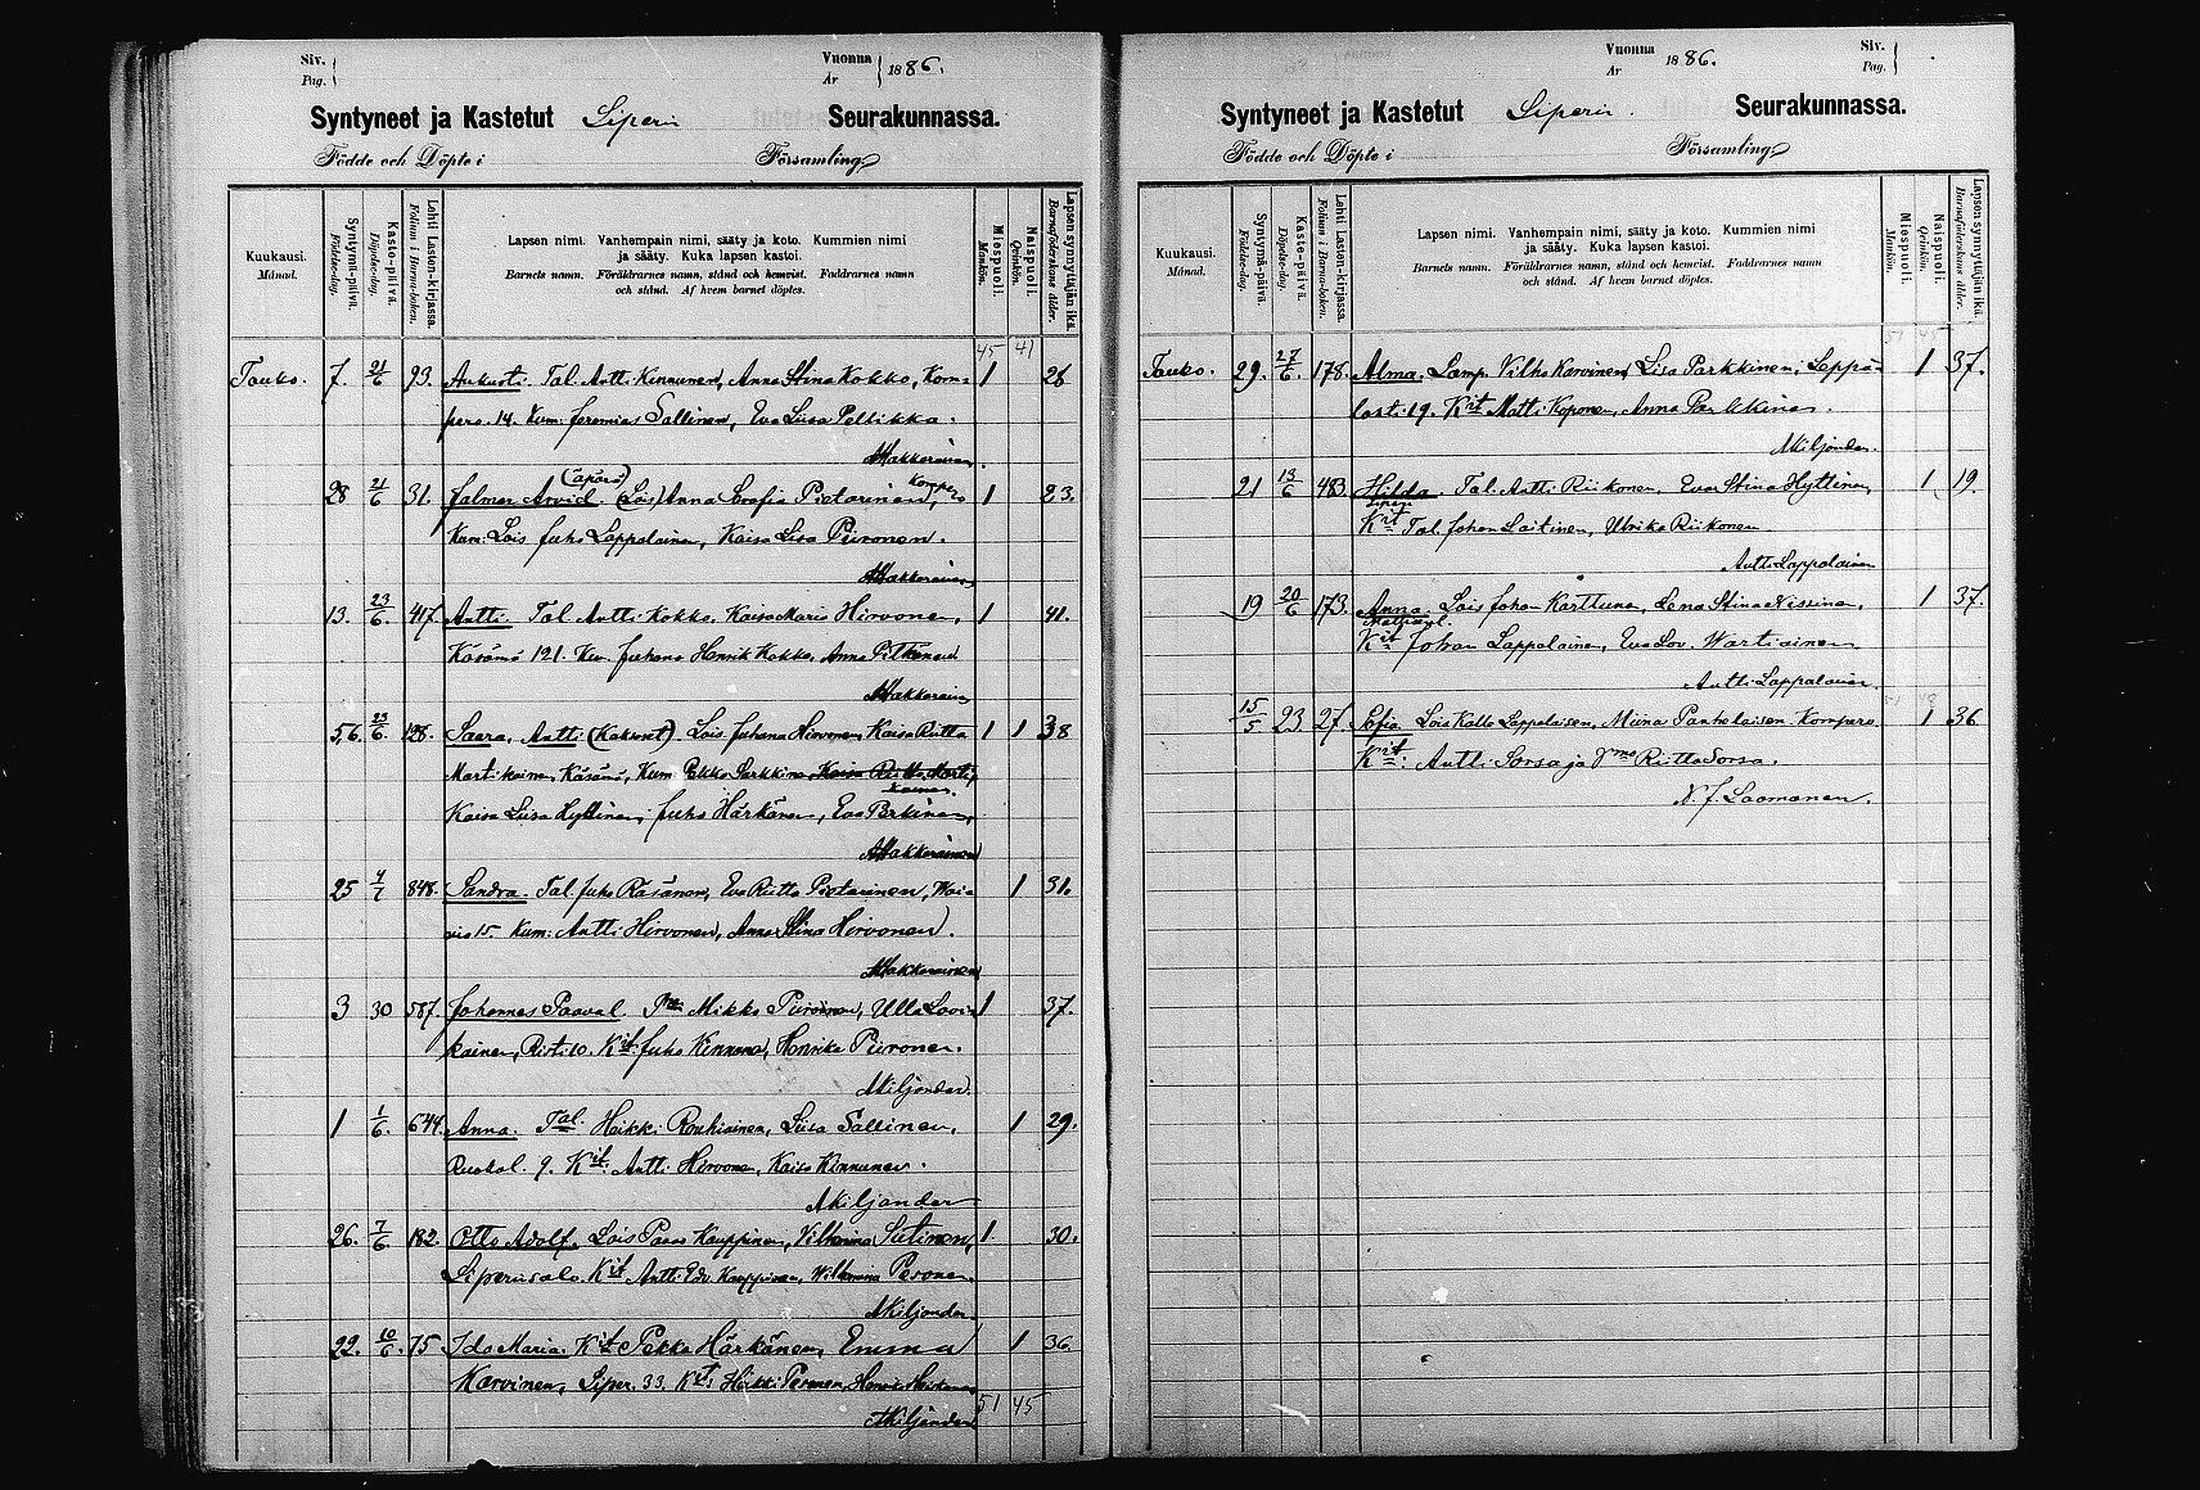 Siv. Vuonna
Pag. År 1886.
Syntyneet ja Kastetut Liperin Seurakunnassa.
Födde och Döpte i Församling
Kuukausi. Månad.
Syntymä-päivä. Födelse-dag.
Kaste-päivä. Döpelse-dag.
Lehti Lasten-kirjassa. Folium i Barna-boken.
Lapsen nimi. Vanhempain nimi, sääty ja koto. Kummien nimi
ja sääty. Kuka lapsen kastoi.
Barnets namn. Föräldrarnes namn, stånd och hemvist. Faddrarnes namn
och stånd. Af hvem barnet döptes.
Miespuoli. Mankön.
Naispuoli. Qvinkön.
Lapsen synnyttäjän ikä. Barnaföderskans ålder.
45 41
Touko. 7. 21/6 93. Aukusti. Tal. Antti Kinnunen, Anna Stina Kokko, Kom- 1 28
pero. 14. Kum: Jeremias Sallinen, Eva Liisa Peltikka.
AMakkarainen.
(äpärä) Kompero
28 21/6 31. Jalmar Arvid. (Lois) Anna Serafia Pietarinen, 1 23.
Kum: Lois Juho Lappalainen, Kaisa Lisa Piironen.
AMakkarainen
13. 23/6. 417. Antti. Tal. Antti Kokko, Kaisa Maria Hirvonen, 1 41.
Käsämä 121. Ku. Juhana Henrik Kokko, Anna Pitkänen
AMakkarainen
5,6. 23/6. 128. Saara, Antti (Kaksoset). Lois Juhana Hirvonen, Kaisa Riitta 1 1 38
Martikainen, Käsämä, Kum Pekka Parkkinen, Kaisa Riitta Marti
kainen.
Kaisa Liisa Hyttinen, Juho Härkänen, Eva Parkinen,
AMakkarainen
25 4/7 848. Sandra. Tal. Juho Räsänen, Eva Riitta Pietarinen, Wai- 1 31.
vio 15. Kum: Antti Hirvonen, Anna Stina Hirvonen.
AMakkarainen
3 30 587. Johannes Paaval. Mikko Piironen, Ulla Lovi- 1 37.
kainen, Risti 10. Kit Juho Kinnunen, Henrika Piironen.
AKiljander.
1 1/6. 644. Anna. Tal. Heikki Rouhiainen, Liisa Sallinen, 1 29.
Ruokol. 9. Kit: Antti Hirvonen, Kaisa Kinnunen.
AKiljander
26. 7/6 182. Otto Adolf. Lois Paavo Kauppinen, Vilhemina Sutinen, 1. 30.
Liperinsalo. Kit Antti Edv. Kauppinen, Wilhemina Pesonen.
AKiljander
22. 10/6. 75 Ida Maria. Kit Pekka Härkänen, Emma 1 36.
Karvinen, Liper. 33. Kit: Heikki Pesonen,
51 45
AKiljander
Vuonna Siv.
År 1886. Pag.
Syntyneet ja Kastetut Liperin. Seurakunnassa.
Födde och Döpte i Församling
Kuukausi. Månad.
Syntymä-päivä. Födelse-dag.
Kaste-päivä. Döpelse-dag.
Lehti Lasten-kirjassa. Folium i Barna-boken.
Lapsen nimi. Vanhempain nimi, sääty ja koto. Kummien nimi
ja sääty. Kuka lapsen kastoi.
Barnets namn. Föräldrarnes namn, stånd och hemvist. Faddrarnes namn
och stånd. Af hvem barnet döptes.
Miespuoli. Mankön.
Naispuoli. Qvinkön.
Lapsen synnyttäjän ikä. Barnaföderskans ålder.
51 45
Touko. 29. 27/6. 178. Alma. Lamp. Vilho Karvinen, Lisa Parkkinen, Leppä- 1 37.
lasti 19. Kit Matti Koponen, Anna Parkkinen.
AKiljander.
21 13/6 483. Hilda. Tal. Antti Riikonen, Eva Stina Hyttinen, 1 19.
Liperi
Kit Tal. Johan Laitinen, Ulrika Riikonen
Antti Lappalainen
19 20/6 173. Anna. Lois Johan Karttunen, Lena Stina Nissinen, 1 37.
Kit Johan Lappalainen, Eva Lov. Wartiainen.
Antti Lappalainen.
15/5 23. 27. Sofia. Lois Kalle Lappalainen, Miina Panhelainen. Kompero. 1 36.
Kit: Antti Sorsa ja Vmo Riitta Sorsa.
N. J. Laamanen.